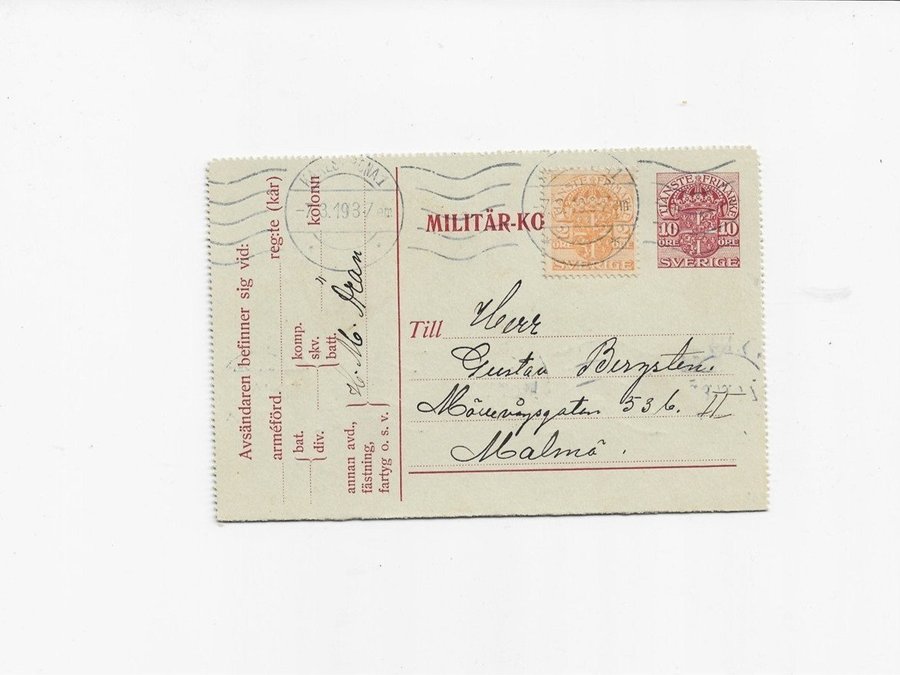 Avsändaren befinner sig vid:
arméförd. reg:te (kår)
bat. komp.
div. skv. kolonn
batt.
annan avd.,
fästning,
fartyg o. s. v.
H. M. Aran
-7.3.19 3-7 em
MILITÄR-KO
2 2
ÖRE
SVERIGE
TJÄNSTE FRIMÄRKE
10 10
ÖRE ÖRE
SVERIGE
Till Herr
Gustav Bergsten.
53 b. II
Malmö.